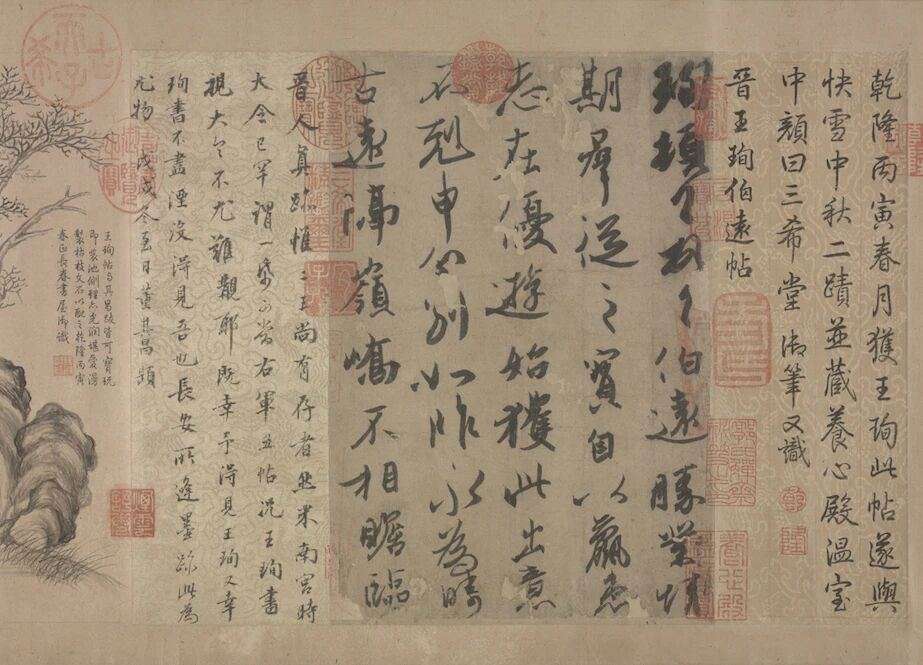 乾隆丙寅春月獲王珣此帖遂與
快雪中秋二蹟並藏養心殿溫室
中顏曰三希堂御筆又識
晉王珣伯遠帖
珣頓首頓首伯遠勝業情
期群從之寶自以羸患
志在優遊始獲此出意
不剋申分別如昨永為疇
古遠隔嶺嶠不相瞻臨
晉人真跡惟二王尚有存者然米南宮時
大令已罕謂一紙可當右軍五帖況王珣書
視大令不尤難覯耶既幸予得見王珣又幸
珣書不盡湮沒得見吾也長安所逢墨跡此為
尤物戊戌冬至日董其昌題
王珣帖與其昌跋皆可寶玩
即裝池側理亦光潤堪愛漫
製枯枝文石以配之乾隆丙寅
春正長春書屋御識